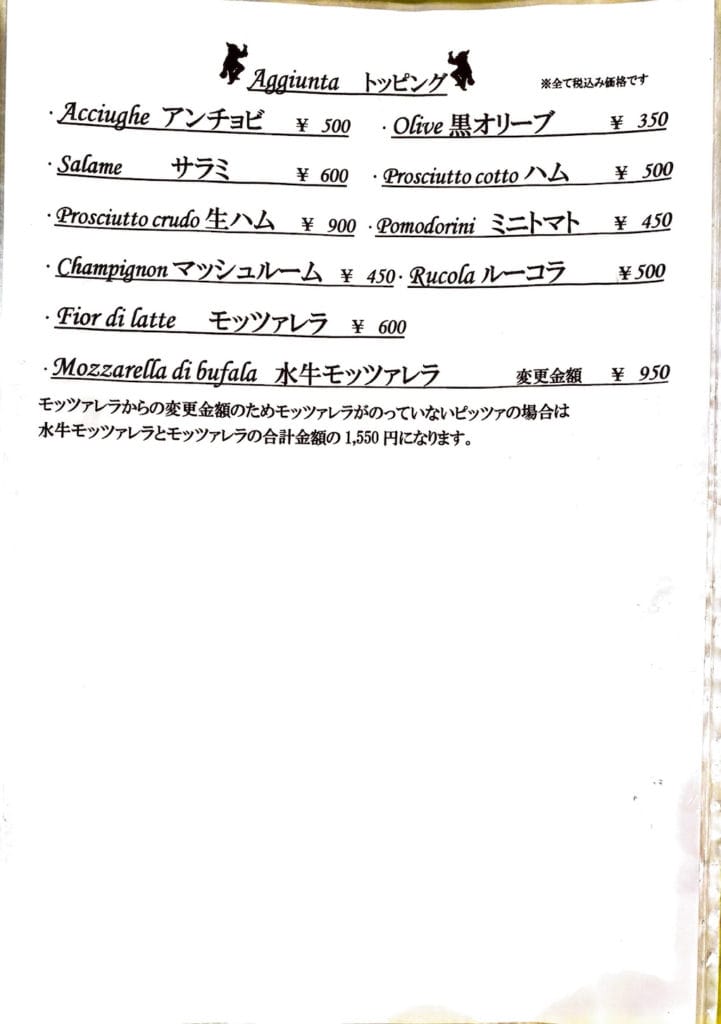 Aggiunta トッピング ※全て税込み価格です
・Acciughe アンチョビ ¥ 500 ・Olive 黒オリーブ ¥ 350
・Salame サラミ ¥ 600 ・Prosciutto cotto ハム ¥ 500
・Prosciutto crudo 生ハム ¥ 900 ・Pomodorini ミニトマト ¥ 450
・Champignon マッシュルーム ¥ 450 ・Rucola ルーコラ ¥500
・Fior di latte モッツァレラ ¥ 600
・Mozzarella di bufala 水牛モッツァレラ 変更金額 ¥ 950
モッツァレラからの変更金額のためモッツァレラがのっていないピッツァの場合は
水牛モッツァレラとモッツァレラの合計金額の 1,550 円になります。